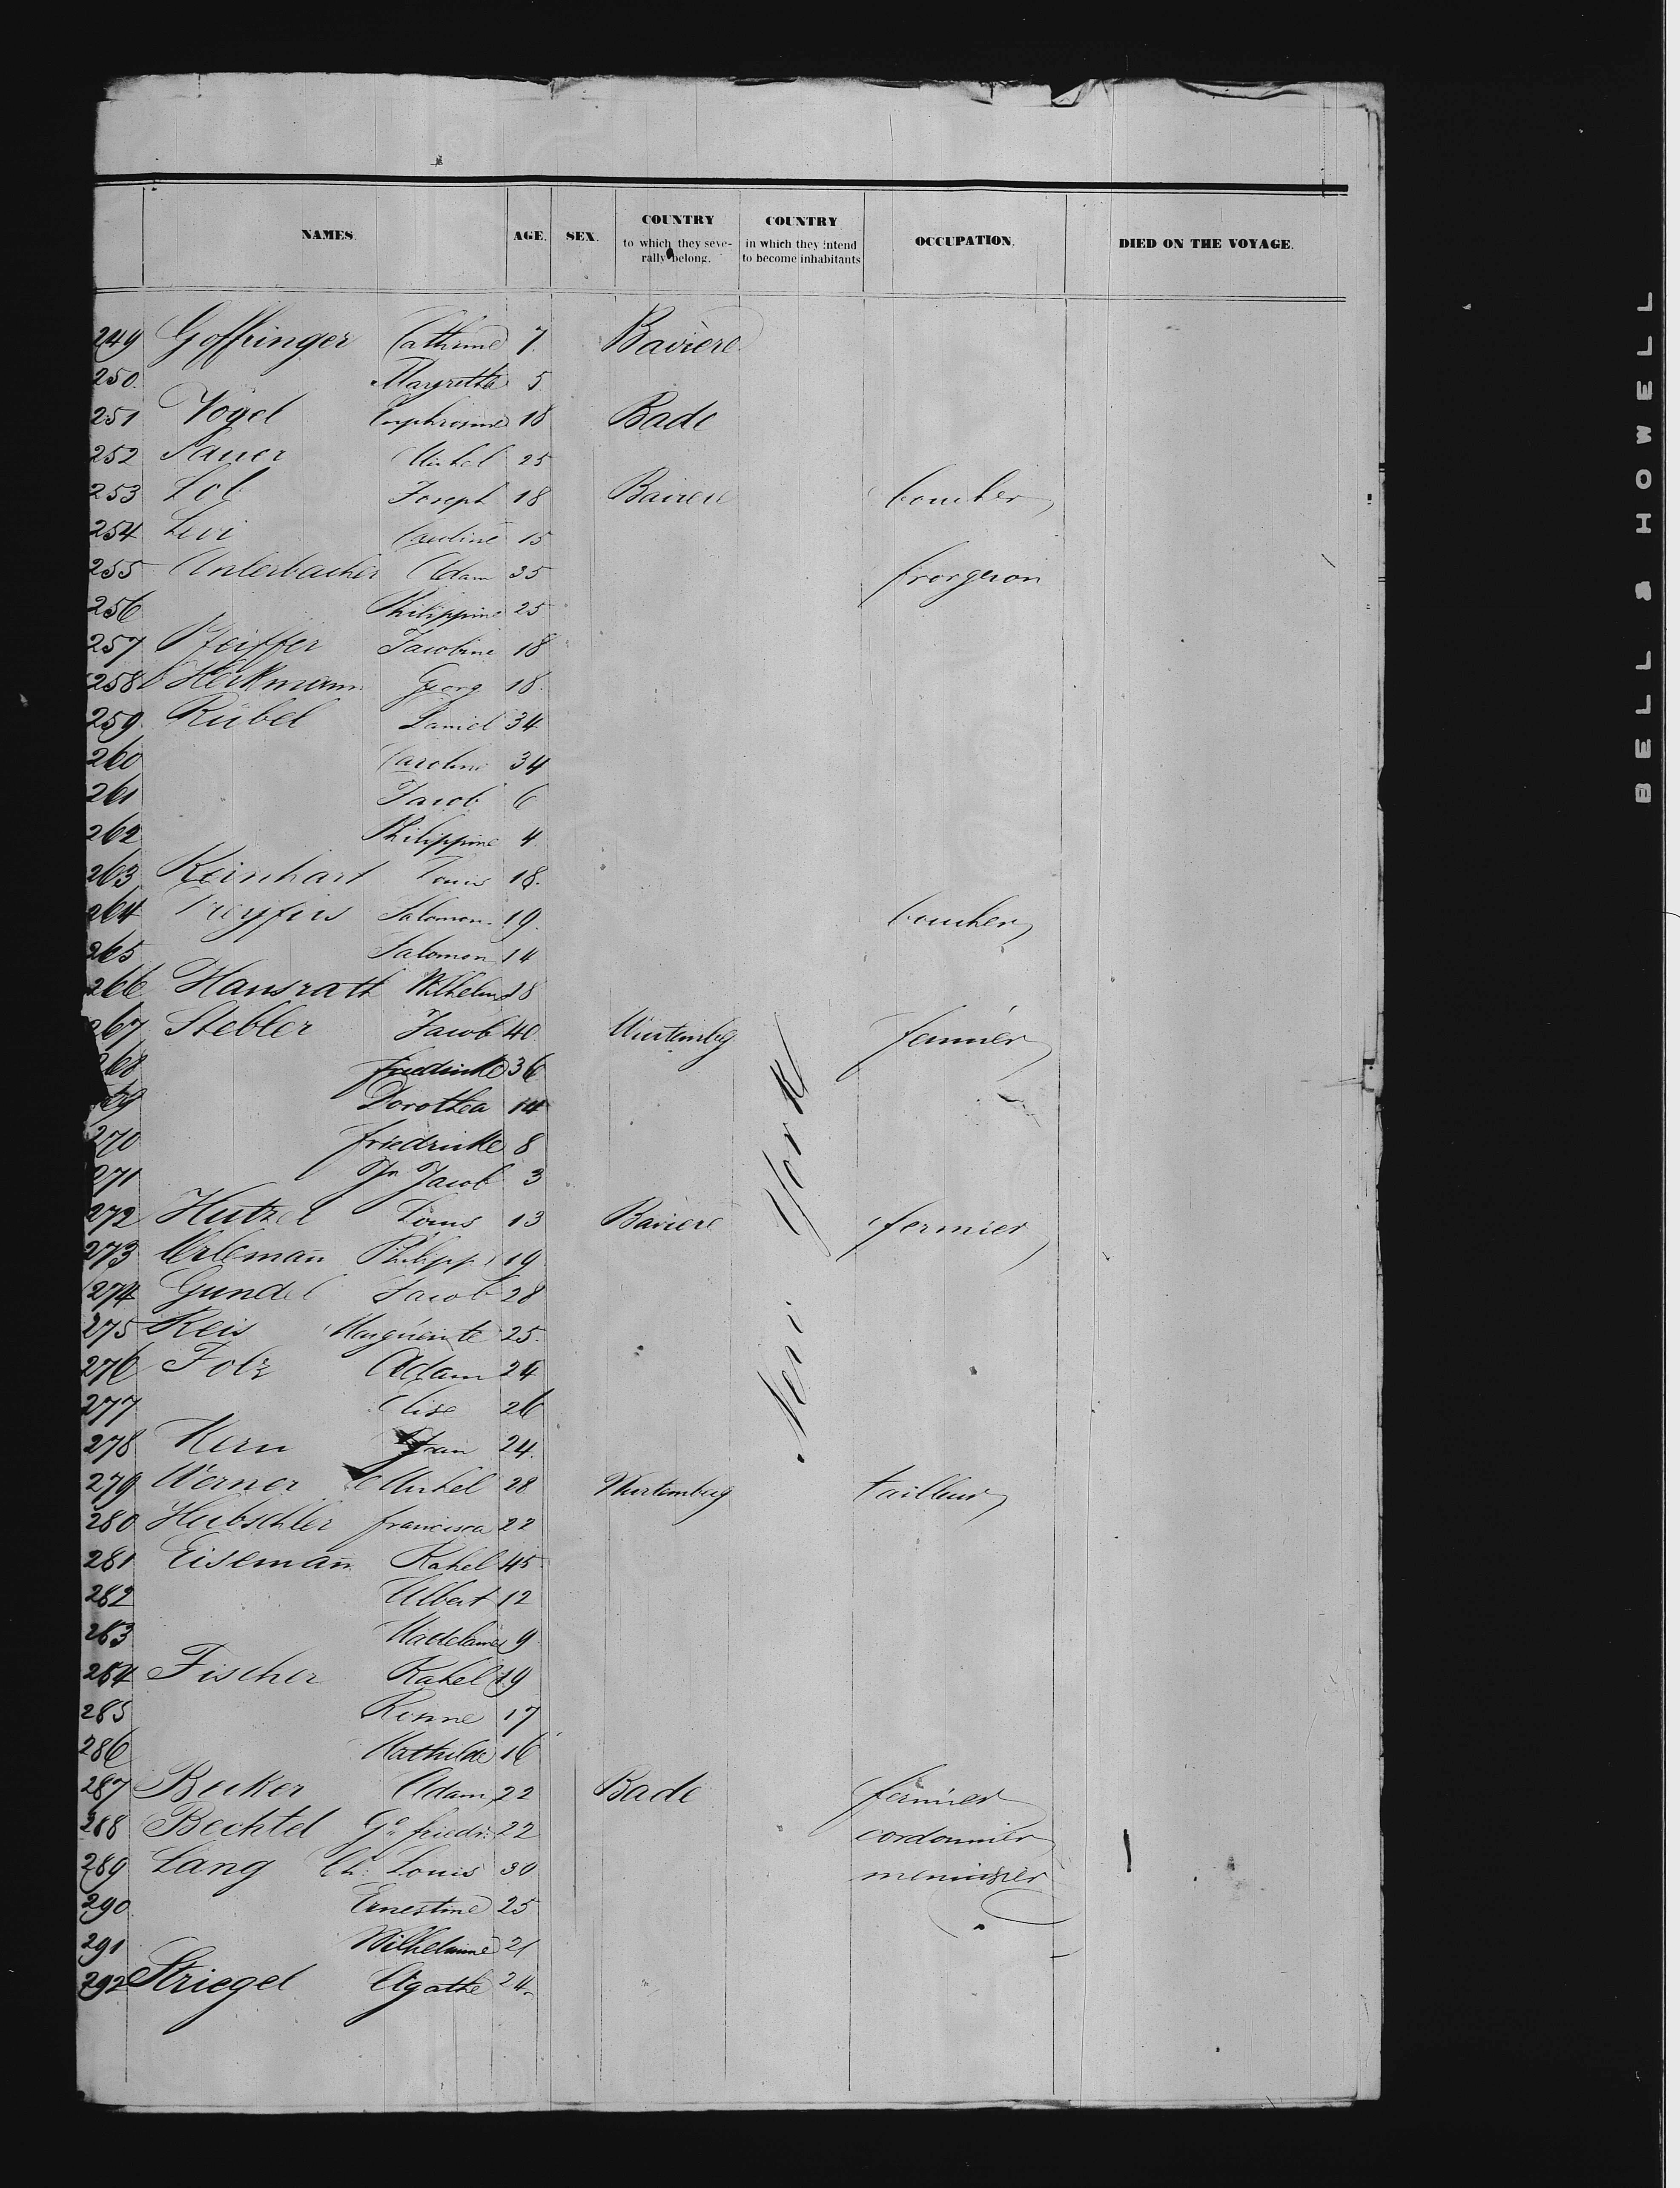 NAMES. AGE. SEX. COUNTRY to which they severally belong. COUNTRY in which they intend to become inhabitants OCCUPATION. DIED ON THE VOYAGE.
249 Goffringer Cathrine 7 Bavière
250 Margretha 5
251 Vogel Euphrosine 18 Bade
252 Sauer Michel 25
253 Lob Joseph 18 Baviere boucher
254 Levi Caroline 15
255 Unterbacher Adam 35 frorgeron
256 Philippine 25
257 Pfeiffer Jacobine 18
258 Heckmann Georg 18
259 Rübel Daniel 34
260 Caroline 34
261 Jacob 6
262 Philippine 4
263 Reinhart Louis 18
264 Dreyfus Salomon 19 boucher
265 Salomon 14
266 Hausrath Wilhelm 28
267 Stebler Jacob 40 Wurtembg fermier
268 friedricke 36
269 Dorothea 14
270 friedricke 8
271 Jn Jacob 3
272 Hutzel Louis 13 Baviere fermier
273 Erlemañ Philipp 19
274 Gundel Jacob 28
275 Reis Marguerite 25
276 Folz Adam 24
277 Elise 26
278 Kern 24
279 Werner Michel 28 Wurtemberg tailleur
280 Hubschler francisca 22
281 Eisemañ Rahel 45
282 Albert 12
283 Madelaine 9
284 Fischer Rahel 19
285 17
286 Mathilde 16
287 Becker Adam 22 Bade fermier
288 Bechtel Ge friedr: 22 cordonnier
289 Lang Ch: Louis 30 menuisier
290 Ernestine 25
291 Wilhelmine 21
292 Striegel Agathe 24
New York
BELL & HOWELL